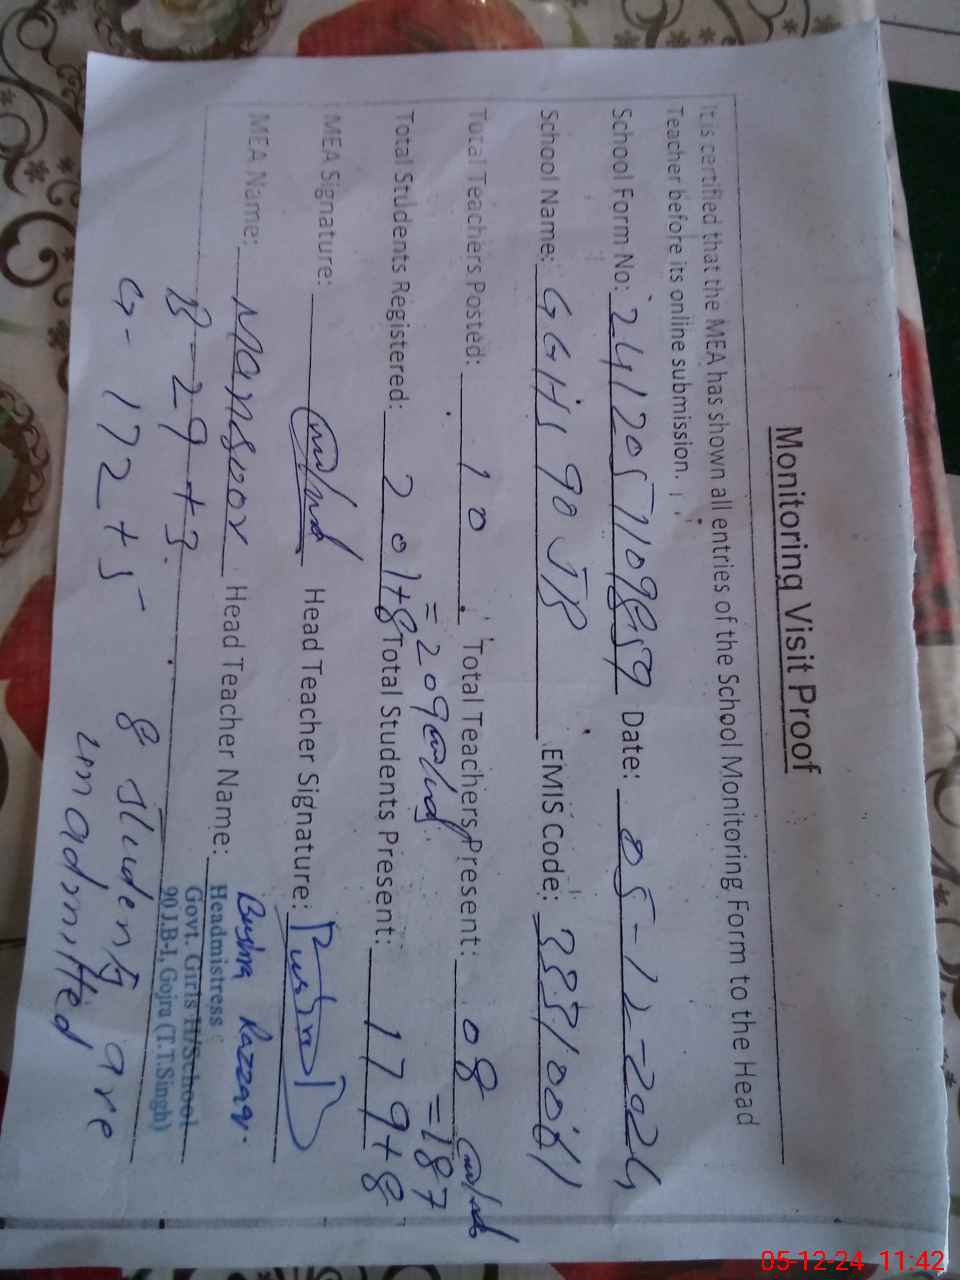 Monitoring Visit Proof
It is certified that the MEA has shown all entries of the School Monitoring Form to the Head
Teacher before its online submission.
School Form No: 2412057109859 Date: 05-12-2024
School Name: GGHS 90 JB EMIS Code: 33310061
Total Teachers Posted: 10 Total Teachers Present: 08
= 209 = 187
Total Students Registered: 201+8 Total Students Present: 179+8
MEA Signature: Head Teacher Signature: Bushra
MEA Name: Mansoor Head Teacher Name: Bushra Razzaq.
Headmistress
Govt. Girls H/School
90 J.B-I, Gojra (T.T.Singh)
B-29+3
G-172+5 8 students are
unadmitted
05-12-24 11:42